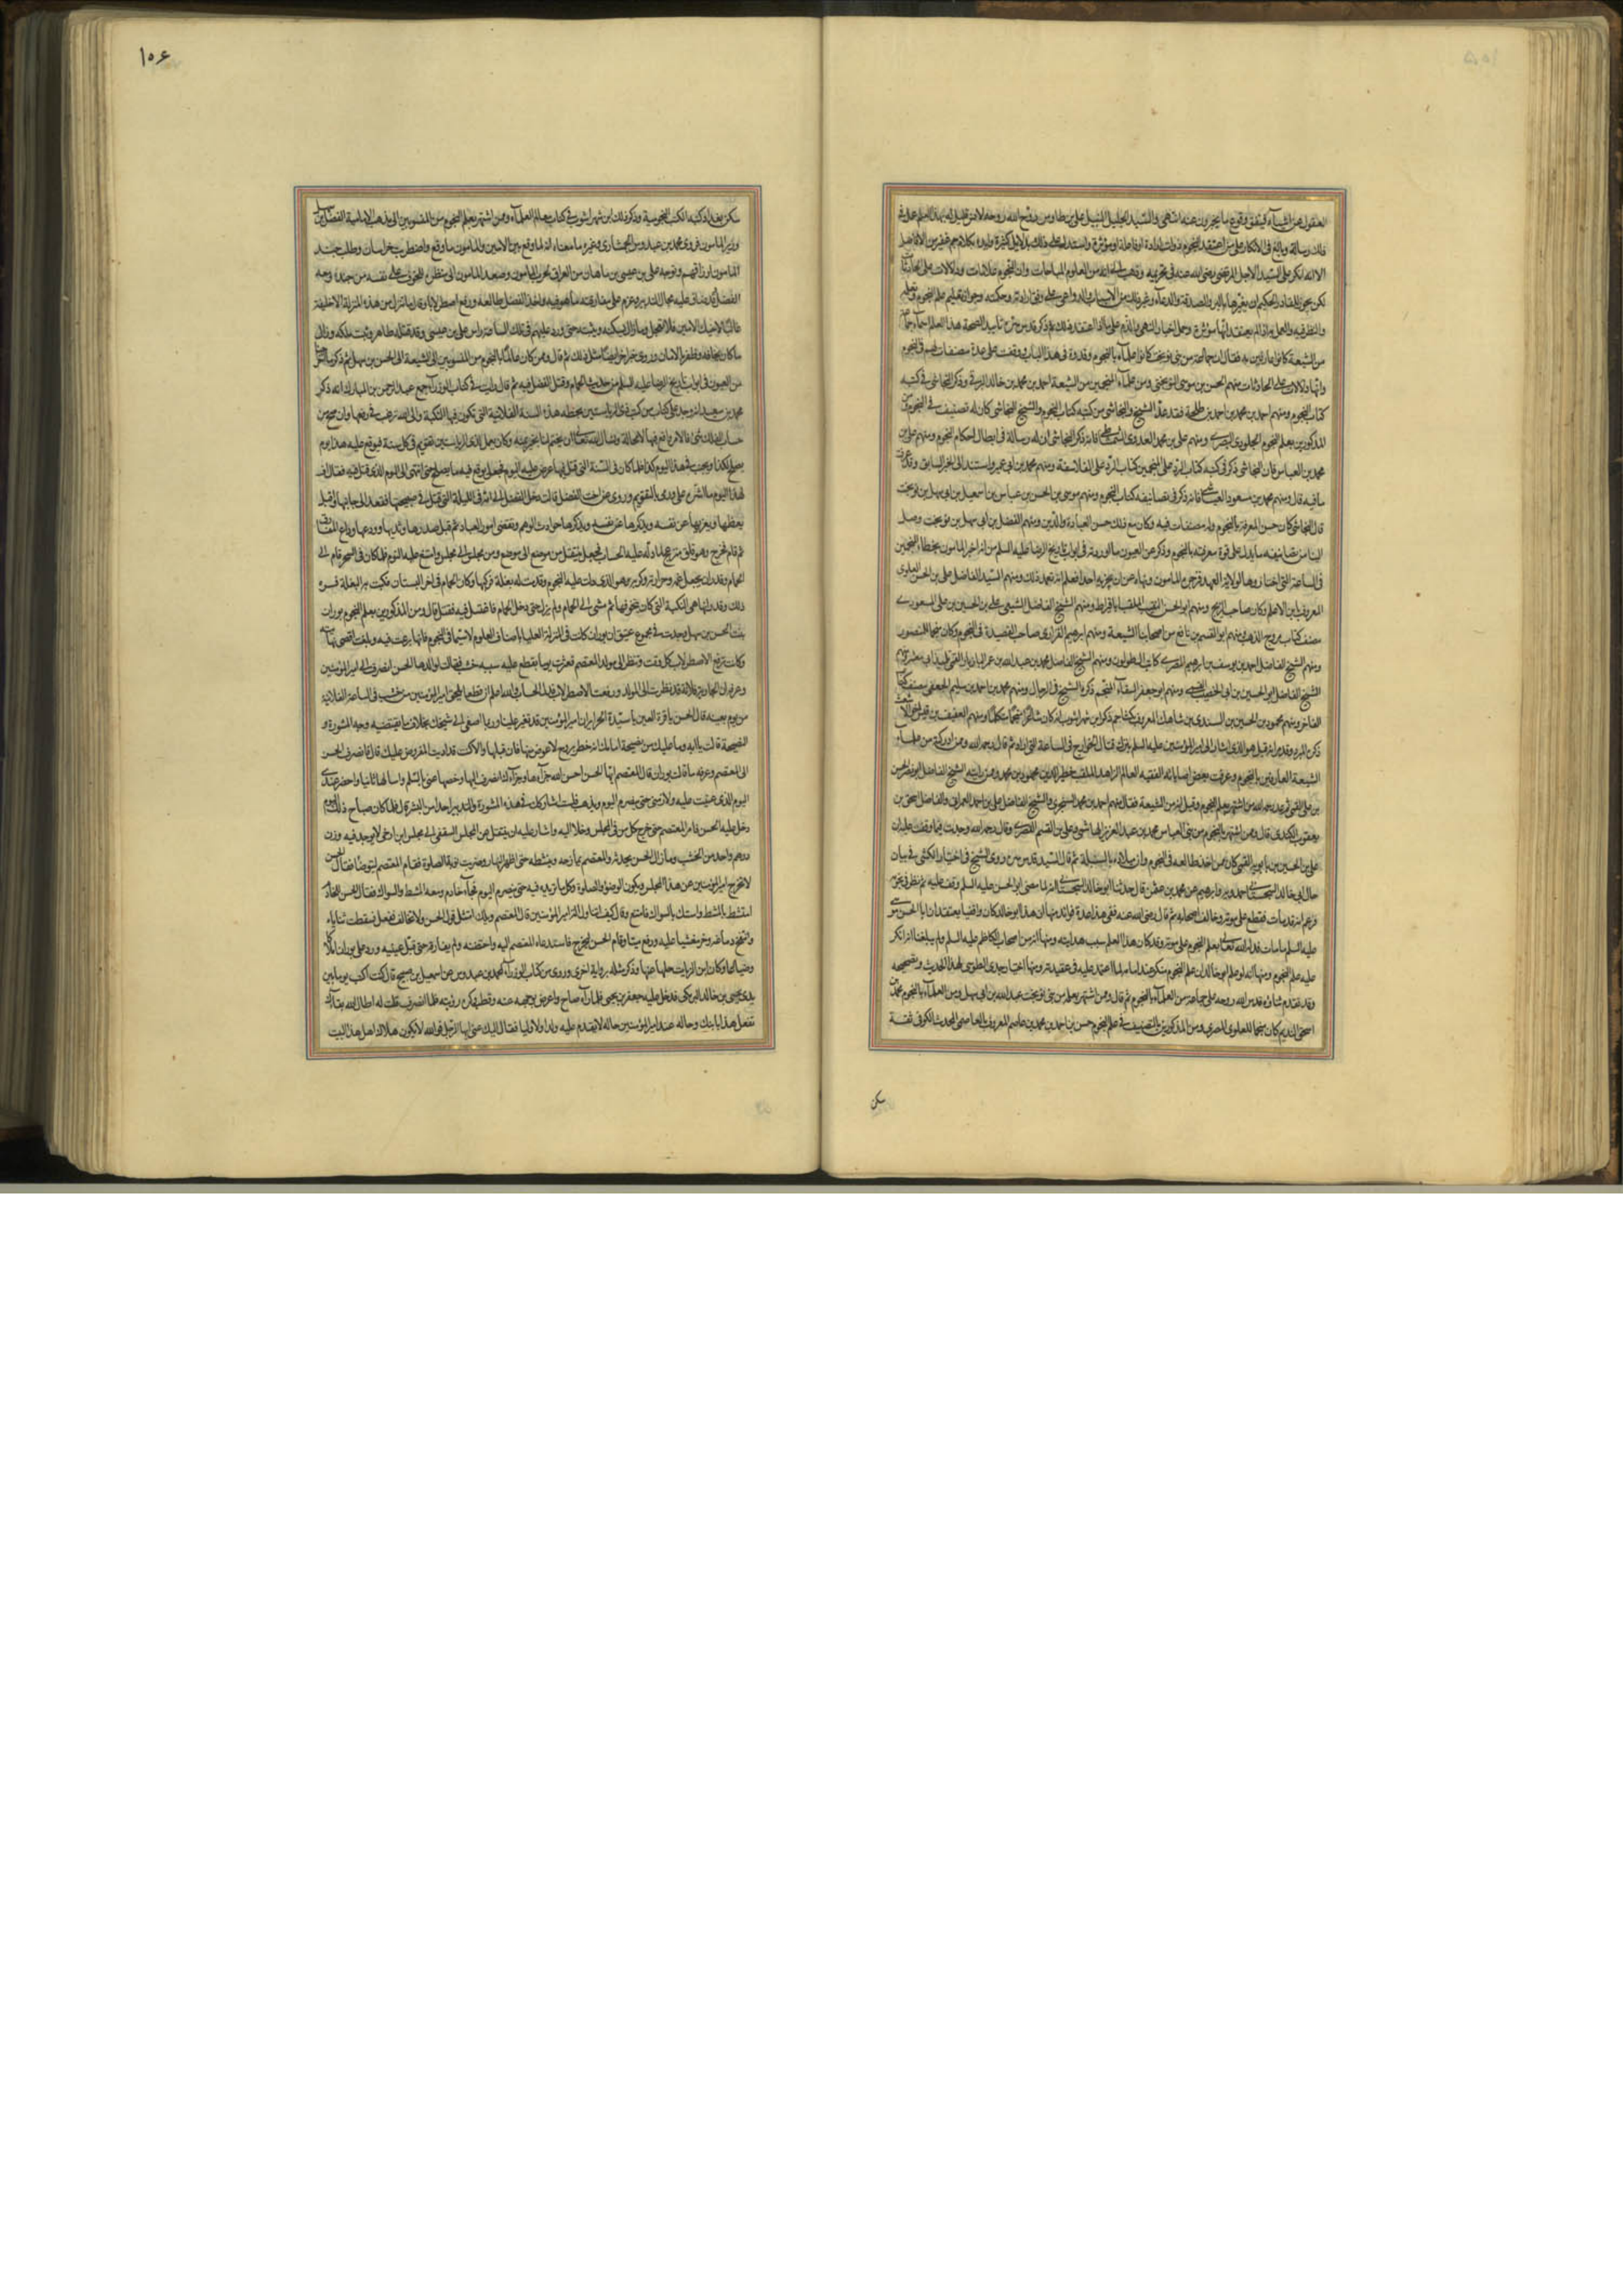 العقول عن اشياء فيتفق وقوع ما يخبرون عنه انتهى والسيد الجليل النبيل علي بن طاوس روح الله روحه
ذلك رسالة وبالغ في الانكار على من اعتقد ان النجوم ذوات ارادة او فاعلة او مؤثرة واستدل على ذلك بدلايل كثيرة وايده بكلام جم غفير من الافاضل
الا انه انكر على السيد الاجل المرتضى رضي الله عنه في تحريمه وذهب الى انه من العلوم المباحات وان النجوم علامات ودلالات على الحادثات
لكن يجوز للقادر الحكيم ان يغيرها بالبر والصدقة والدعاء وغير ذلك من الاسباب والدواعي على وفق ارادته وحكمته وجواز تعليم علم النجوم وتعلمه
والنظر فيه والعمل به اذا لم يعتقد انها مؤثرة وحمل اخبار النهي والذم على ما اذا اعتقد ذلك ثم ذكر تأييدا لصحة هذا العلم اسماء جماعة
من الشيعة كانوا عارفين به فقال ان جماعة من بني نوبخت كانوا علماء بالنجوم وقدوة في هذا الباب ووقفت على عدة مصنفات لهم في النجوم
وانها دلالات على الحادثات منهم الحسن بن موسى النوبختي ومن علماء المنجمين من الشيعة احمد بن محمد بن خالد البرقي وذكر النجاشي في كتبه
كتاب النجوم ومنهم احمد بن محمد بن احمد بن طلحة فقد عد الشيخ والنجاشي من كتبه كتاب النجوم والشيخ النجاشي كان له تصنيف في النجوم ومن
المذكورين بعلم النجوم الجلودي البصري ومنهم علي بن محمد العدوي الشمشاطي فانه ذكر النجاشي ان له رسالة في ابطال احكام النجوم ومنهم علي بن
محمد بن العباس فان النجاشي ذكر في كتبه كتاب الرد على المنجمين كتاب الرد على الفلاسفة ومنهم محمد بن ابي عمير واستند الى الخبر السابق وقد عرفت
ما فيه قال ومنهم محمد بن مسعود العياشي فانه ذكر في تصانيفه كتاب النجوم ومنهم موسى بن الحسن بن عباس بن اسمعيل بن ابي سهل بن نوبخت
قال النجاشي كان حسن المعرفة بالنجوم وله مصنفات فيه وكان مع ذلك حسن العبادة والدين ومنهم الفضل بن ابي سهل بن نوبخت وصل
الينا من تصانيفه ما يدل على قوة معرفته بالنجوم وذكر عن العيون ما اوردته في ابواب تاريخ الرضا عليه السلم من انه اخبر المامون بخطاء المنجمين
في الساعة التي اختاروها لولاية العهد فزجره المامون ونهاه عن ان يخبر به احدا فعلم انه تعمد ذلك ومنهم السيد الفاضل علي بن الحسن العلوي
المعروف بابن الاعلم وكان صاحب الزيج ومنهم ابو الحسن النقيب الملقب ابا قيراط ومنهم الشيخ الفاضل الشيعي علي بن الحسين بن علي المسعودي
مصنف كتاب مروج الذهب ومنهم ابو القسم بن نافع من اصحابنا الشيعة ومنهم ابرهيم الفزاري صاحب القصيدة في النجوم وكان منجما للمنصور
ومنهم الشيخ الفاضل احمد بن يوسف بن ابرهيم المصري كاتب ال طولون ومنهم الشيخ الفاضل محمد بن عبد الله بن عمر البازيار القمي تلميذ ابي معشر ومنهم
الشيخ الفاضل ابو الحسين بن ابي الخصيب القمي ومنهم ابو جعفر السقاء المنجم ذكره الشيخ في الرجال ومنهم محمد بن احمد بن سليم الجعفي مصنف كتاب
الفاخر ومنهم محمود بن الحسين بن السندي بن شاهك المعروف بكشاجم ذكر ابن شهر اشوب انه كان شاعرا منجما متكلما ومنهم العفيف بن قيس اخو الاشعث
ذكره المبرد وقد مر انه قيل هو الذي اشار الى امير المؤمنين عليه السلم بترك قتال الخوارج في الساعة التي اراد ثم قال رحمه الله وممن ادركته من علماء
الشيعة العارفين بالنجوم وعرفت بعض اصاباته الفقيه العالم الزاهد الملقب خطير الدين محمود بن محمد وممن رايته الشيخ الفاضل ابو نصر الحسن
بن علي القمي ثم عد رحمه الله من اشتهر بعلم النجوم وقيل انه من الشيعة فقال منهم احمد بن محمد السنجري والشيخ الفاضل علي بن احمد العمراني والفاضل اسحق بن
يعقوب الكندي قال وممن اشتهر بالنجوم من بني العباس محمد بن عبد العزيز الهاشمي وعلي بن القسم القصري وقال رحمه الله وجدت فيما وقفت عليه ان
علي بن الحسين بن بابويه القمي كان ممن اخذ طالعه في النجوم وان ميلاده بالسنبلة ثم قال السيد قدس سره روى الشيخ في اختيار الكشي في بيان
حال ابي خالد السجستاني حمدويه وابرهيم عن محمد بن عثمن قال حدثنا ابو خالد السجستاني انه لما مضى ابو الحسن عليه السلم وقف عليه ثم نظر في نجومه
فزعم انه قد مات فقطع على موته وخالف اصحابه ثم قال رضي الله عنه ففي هذا عدة فوائد منها ان هذا ابو خالد كان واقفيا يعتقد ان ابا الحسن موسى
عليه السلم ما مات فدله الله تعالى بعلم النجوم على موته وقد كان هذا العلم سبب هدايته ومنها انه من اصحاب الكاظم عليه السلم ولم يبلغنا انه انكر
عليه علم النجوم ومنها انه لو علم ابو خالد ان علم النجوم منكر عند امامه لما اعتمد عليه في عقيدته ومنها اختيار جدي الطوسي لهذا الحديث وتصحيحه
وقد تقدم ثناؤه قدس الله روحه على جماعة من العلماء بالنجوم ثم قال وممن اشتهر بعلمه من بني نوبخت عبد الله بن ابي سهل ومن العلماء بالنجوم محمد بن
اسحق النديم كان منجما للعلوي المصري ومن المذكورين بالتصنيف في علم النجوم حسن بن احمد بن محمد بن عاصم المعروف بالعاصمي المحدث الكوفي ثقة
سكن
١٥٦
سكن بغداد فمن كتبه الكتب النجومية وذكر ذلك ابن شهر اشوب في كتاب معالم العلماء وممن اشتهر بعلم النجوم من المنسوبين الى مذهب الامامية الفضل بن سهل
وزير المامون فروى محمد بن عبدوس الجهشياري وغيره ما معناه انه لما وقع بين الامين والمامون ما وقع واضطربت خراسان وطلب جند
المامون ارزاقهم وتوجه علي بن عيسى بن ماهان من العراق لحرب المامون وصعد المامون الى منظرة للخوف على نفسه من جنده ومعه
الفضل وقد ضاق عليه مجال التدبير وعزم على مفارقة ما هو فيه واخذ الفضل طالعه ورفع اصطرلابا وقال ما تنزل من هذه المنزلة الا خليفة
غالبا لاخيك الامين فلا تعجل وما زال يسكنه ويثبته حتى ورد عليهم في تلك الساعة راس علي بن عيسى وقد قتله طاهر وثبت ملكه وزال
ما كان يخافه وظفر بالامان وروى خبرا اخر ايضا مثل ذلك ثم قال وممن كان عالما بالنجوم من المنسوبين الى الشيعة الحسن بن سهل ثم ذكر ما
من العيون في ابواب تاريخ الرضا عليه السلم من حديث الحمام وقتل الفضل فيه ثم قال ورايت في كتاب الوزراء جمع عبد الرحمن بن المبارك انه ذكر
محمد بن سعيد انه وجد على كتاب من كتب ذي الرياستين بخطه هذه السنة الفلانية التي تكون فيها النكبة والى الله نرغب في دفعها وان صح من
حساب الفلك شيء فالامر واقع فيها لا محالة ونسال الله تعالى ان يختم لنا بخير بمنه وكان يعمل لذي الرياستين تقويم في كل سنة فيوقع عليه هذا يوم
يصلح لكذا ويجتنب في هذا اليوم كذا فلما كان في السنة التي قتل فيها عرض عليه اليوم فجعل يوقع فيه ما يصلح حتى انتهى الى اليوم الذي قتل فيه فقال اف
لهذا اليوم ما اشره علي ورمى بالتقويم وروى عن اخت الفضل قالت دخل الفضل الى امه في الليلة التي قتل في صبيحتها فقعد الى جانبها واقبل
يعظها ويعزيها عن نفسه ويذكرها حوادث الدهر وتقضي امور العباد ثم قبل صدرها وثديها وودعها وداع المفارق
ثم قام فخرج وهو قلق منزعج لما دله عليه الحساب فجعل ينتقل من موضع الى موضع ومن مجلس الى مجلس وامتنع عليه النوم فلما كان في السحر قام الى
الحمام وقدر ان يجعل غمه وحرارته وكربه هو الذي دلت عليه النجوم وقدمت له بغلة فركبها وكان الحمام في اخر البستان فكبت به البغلة فسره
ذلك وقدر انها هي النكبة التي كان يتخوفها ثم مشى الى الحمام ولم يزل حتى دخل الحمام فاغتسل فيه فقتل قال ومن المذكورين بعلم النجوم بوران
بنت الحسن بن سهل وجدت في مجموع عتيق ان بوران كانت في المنزلة العليا باصناف العلوم لا سيما في النجوم فانها برعت فيه وبلغت اقصى نهايته
وكانت ترفع الاصطرلاب كل وقت وتنظر الى مولد المعتصم فعثرت يوما بقطع عليه سببه خشب فقالت لوالدها الحسن انصرف الى امير المؤمنين
وعرفه ان الجارية فلانة قد نظرت الى المولد ورفعت الاصطرلاب فدل الحساب والله اعلم ان قطعا يلحق امير المؤمنين من خشب في الساعة الفلانية
من يوم بعينه قال الحسن يا قرة العين يا سيدة الحرائر ان امير المؤمنين قد تغير علينا وربما اصغى الى شيخك بخلاف ما يقتضيه وجه المشورة و
النصيحة قالت يا ابه وما عليك من نصيحة امامك لانه خطر بروح لا عوض منها فان قبلها والا كنت قد اديت المفروض عليك قال فانصرف الحسن
الى المعتصم وعرفه ما قالت بوران قال المعتصم ايها الحسن احسن الله جزاءها وجزاءك انصرف اليها وخصها عني بالسلم واسالها ثانيا واحضر عندي
اليوم الذي عينت عليه ولازمني حتى ينصرم اليوم ويذهب فلست اشاركك في هذه المشورة والتدبير احدا من البشر قال فلما كان صباح ذلك اليوم
دخل عليه الحسن فامر المعتصم حتى خرج كل من في المجلس وخلا اليه واشار عليه ان ينتقل عن المجلس السقفي الى مجلس ابن ارخى لا يوجد فيه وزن
درهم واحد من الخشب وما زال الحسن يحدثه والمعتصم يمازحه وينشطه حتى اظهر النهار وضربت نوبة الصلوة فقام المعتصم ليتوضا فقال الحسن
لا تخرج امير المؤمنين عن هذا المجلس ويكون الوضوء والصلوة وكل ما تريد فيه حتى ينصرم اليوم فجاء خادم ومعه المشط والسواك فقال الحسن للخادم
امتشط بالمشط واستك بالسواك فامتنع وقال كيف اتناول الة امير المؤمنين قال المعتصم ويلك امتثل قول الحسن ولا تخالف ففعل فسقطت ثناياه
وانتفخ دماغه وخر مغشيا عليه ورفع ميتا وقام الحسن ليخرج فاستدعاه المعتصم اليه واحتضنه ولم يفارقه حتى قبل عينيه ورد على بوران املاكا
وضياعا وكان ابن الزيات سلبها عنها وذكر مثله برواية اخرى وروى من كتاب الوزراء لمحمد بن عبدوس عن اسمعيل بن صبيح قال كنت اكتب يوما بين
يدي يحيى بن خالد البرمكي فدخل عليه جعفر بن يحيى فلما راه صاح واعرض بوجهه عنه وقطب وكره رؤيته فلما انصرف قلت له اطال الله بقاءك
تفعل هذا بابنك وحاله عند امير المؤمنين حاله لا يقدم عليه ولدا ولا وليا فقال اليك عني ايها الرجل فوالله لا يكون هلاك اهل هذا البيت